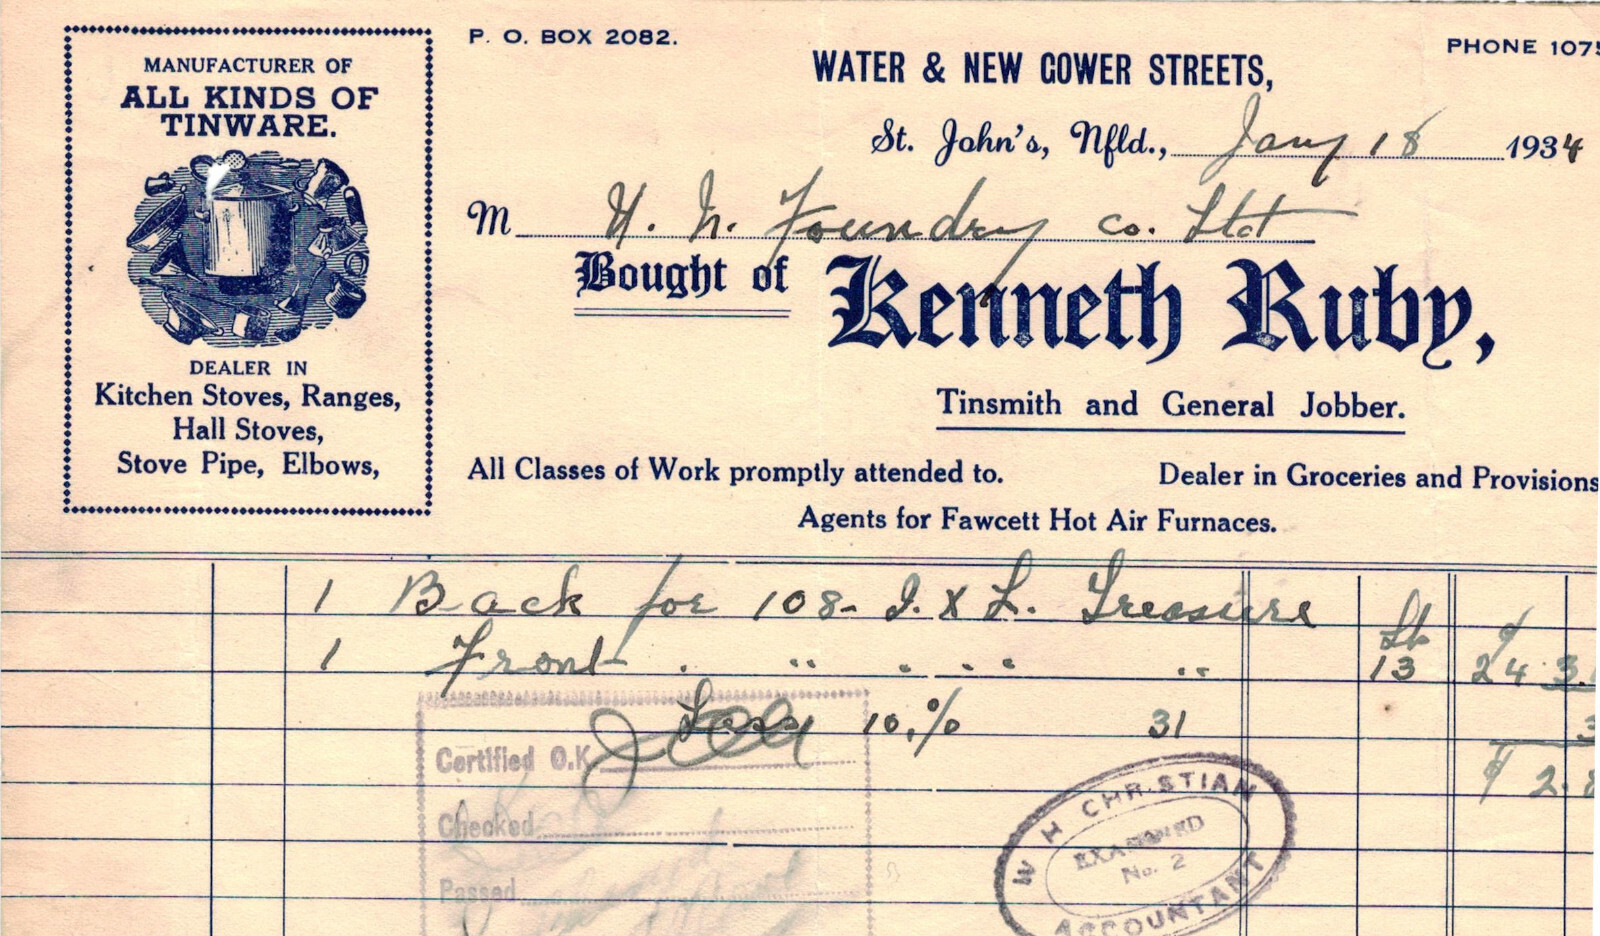 P. O. BOX 2082.
PHONE 1075
MANUFACTURER OF
ALL KINDS OF
TINWARE.
DEALER IN
Kitchen Stoves, Ranges,
Hall Stoves,
Stove Pipe, Elbows,
WATER & NEW GOWER STREETS,
St. John's, Nfld., Jany 18 1934
M U. N. Foundry Co. Ltd
Bought of Kenneth Ruby,
Tinsmith and General Jobber.
All Classes of Work promptly attended to. Dealer in Groceries and Provisions
Agents for Fawcett Hot Air Furnaces.
1 Back for 108- I. X L. Treasure
1 Front . .. . .. .. 13 lb 24 ¢ 3.
Less 10% 31 3
$ 2.8
Certified O.K.
Checked
Passed
W H CHRISTIAN
EXAMINED
No. 2
ACCOUNTANT